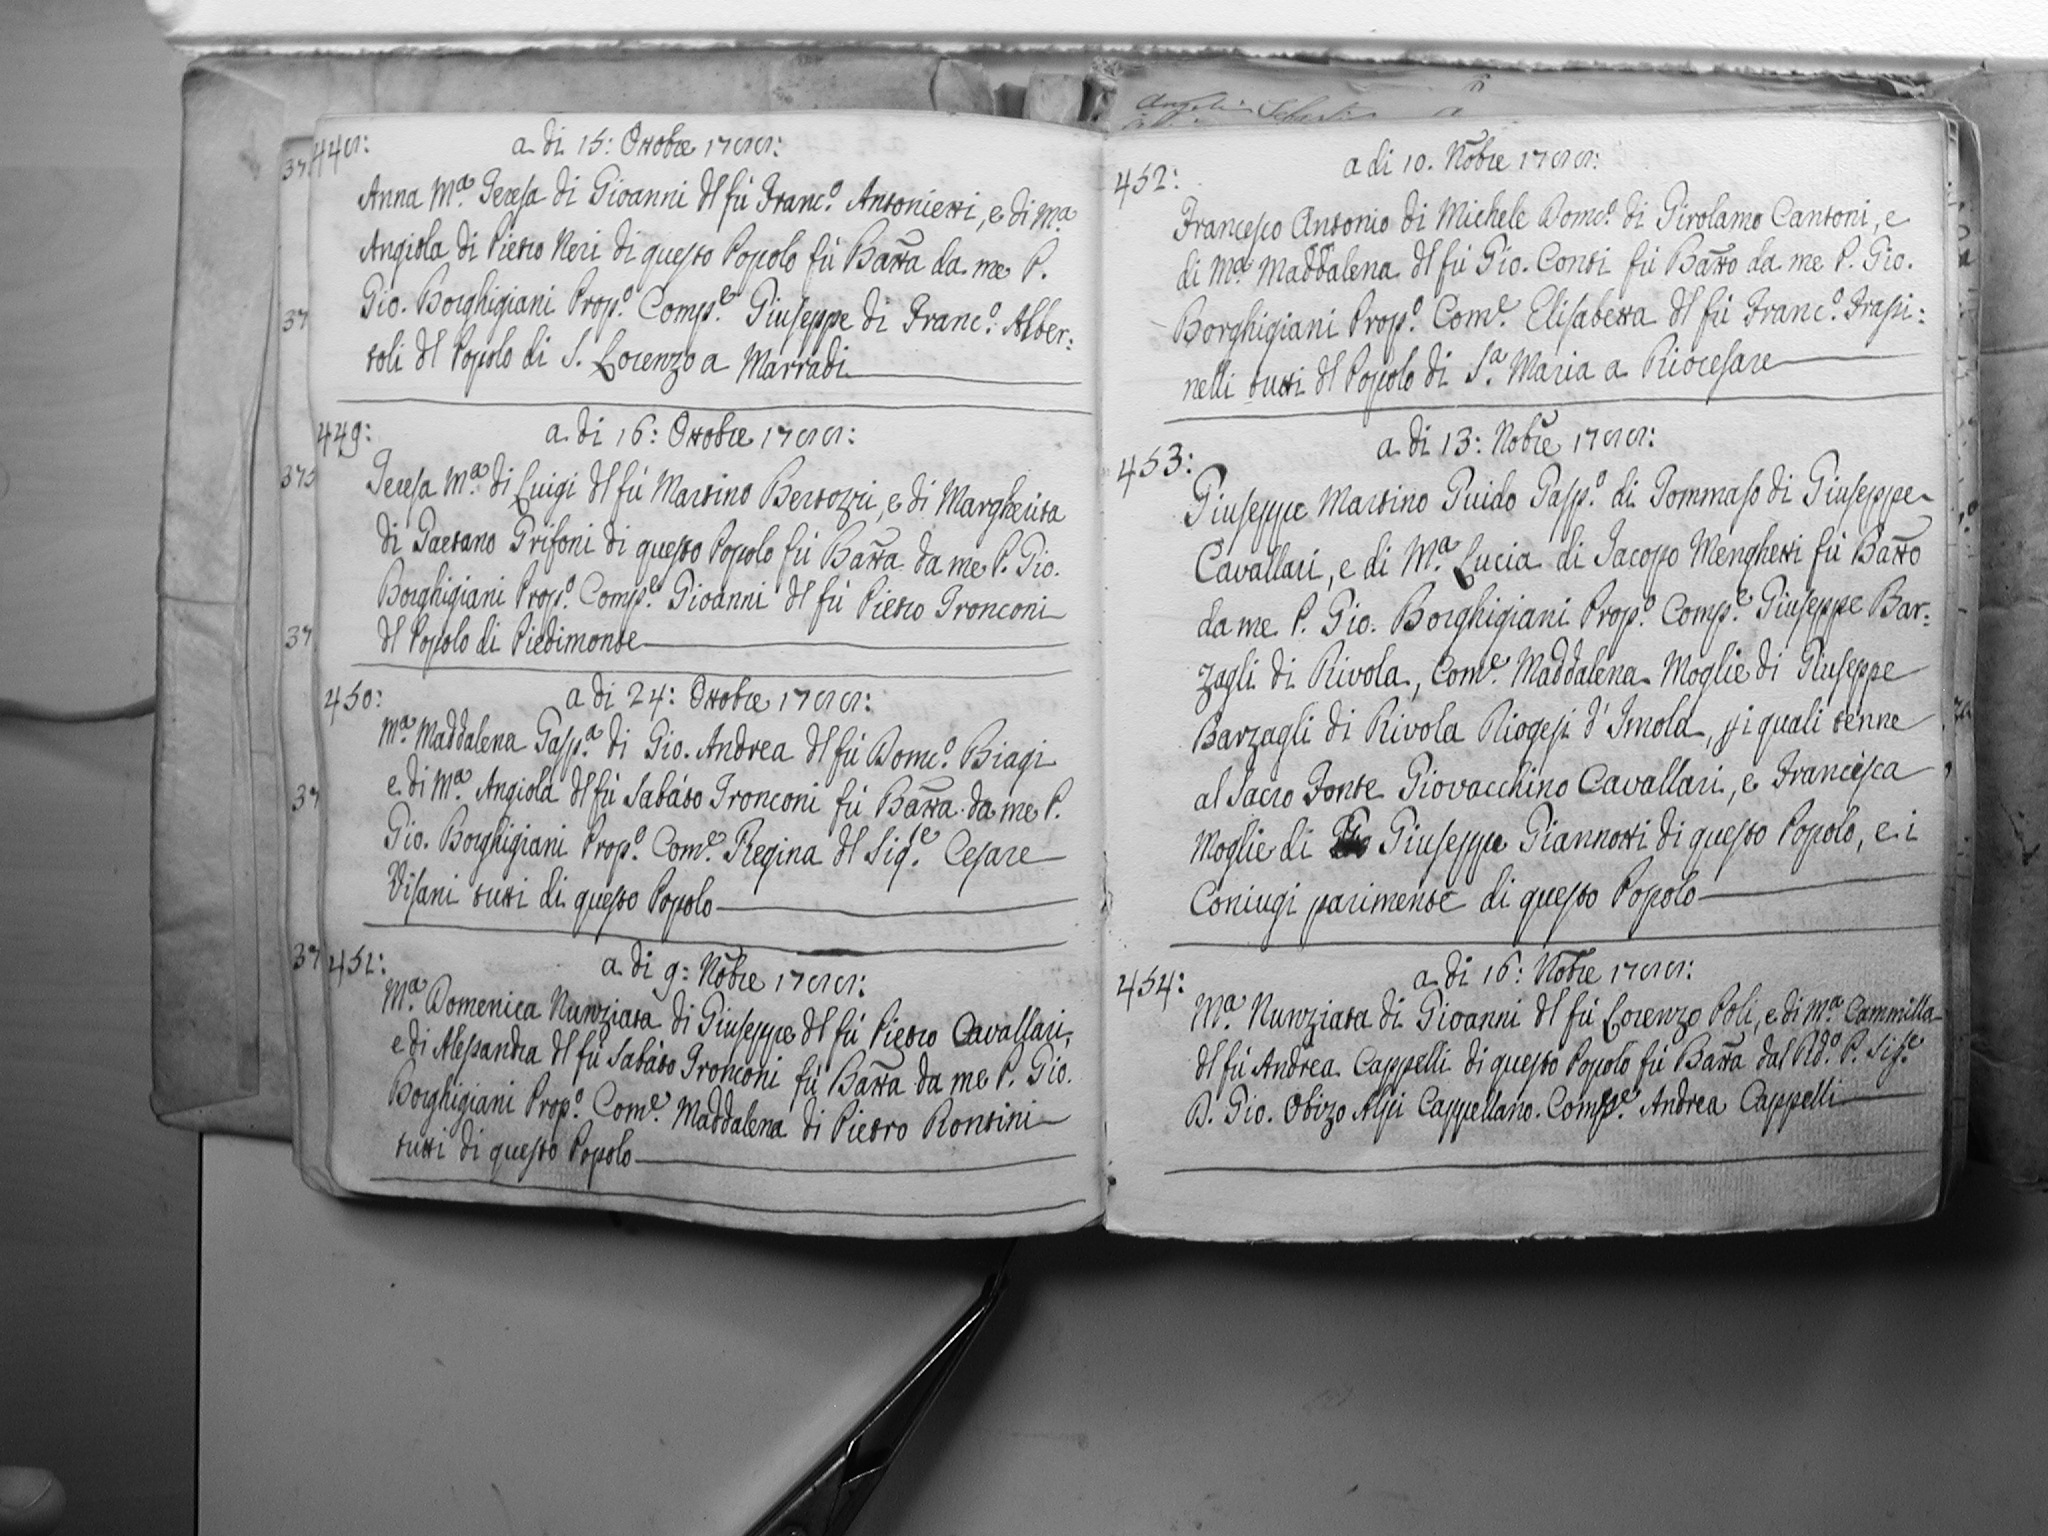 448:
a di 15: Ottobre 1788:
Anna Mª. Teresa di Gioanni dl fù Franc.º Antonietti, e di Mª.
Angiola di Pietro Neri di questo Popolo fù Batta da me P.
Gio. Borghigiani Prop.º Comp.e Giuseppe di Franc.º Alber:
toli dl Popolo di S. Lorenzo a Marradi
449:
a di 16: Ottobre 1788:
Teresa Mª. di Luigi dl fù Martino Bertozzi, e di Margherita
di Gaetano Grifoni di questo Popolo fù Batta da me P. Gio.
Borghigiani Prop.º Comp.e Gioanni dl fù Pietro Tronconi
dl Popolo di Piedimonte
450:
a di 24: Ottobre 1788:
Mª. Maddalena Gasp.ª di Gio. Andrea dl fù Domc.º Biagi
e di Mª. Angiola dl fù Sabáto Tronconi fù Batta da me P.
Gio. Borghigiani Prop.º Com.e Regina dl Sig.re Cesare
Visani tutti di questo Popolo
451:
a di 9: Nõbre 1788:
Mª. Domenica Nunziata di Giuseppe dl fù Pietro Cavallari,
e di Alessandra dl fù Sabáto Tronconi fù Batta da me P. Gio.
Borghigiani Prop.º Com.e Maddalena di Pietro Rontini
tutti di questo Popolo
452:
a di 10. Nõbre 1788:
Francesco Antonio di Michele Domc.º di Girolamo Cantoni, e
di Mª. Maddalena dl fù Gio. Conti fù Batto da me P. Gio.
Borghigiani Prop.º Com.e Elisabetta dl fù Franc.º Frasi:
nelli tutti dl Popolo di S.ª Maria a Riocesare
453:
a di 13: Nõbre 1788:
Giuseppe Martino Guido Gasp.º di Tommaso di Giuseppe
Cavallari, e di Mª. Lucia di Jacopo Menghetti fù Batto
da me P. Gio. Borghigiani Prop.º Comp.e Giuseppe Bar:
zagli di Rivola, Com.e Maddalena Moglie di Giuseppe
Barzagli di Rivola Diogesi d' Imola, p i quali tenne
al Sacro Fonte Giovacchino Cavallari, e Francesca
Moglie di Giuseppe Giannotti di questo Popolo, e i
Coniugi parimente di questo Popolo
454:
a di 16: Nõbre 1788:
Mª. Nunziata di Gioanni dl fù Lorenzo Poli, e di Mª. Cammilla
dl fù Andrea Cappelli di questo Popolo fù Batta dal Rd.º P. Sig.re
D. Gio. Obizo Alpi Cappellano. Comp.e Andrea Cappelli